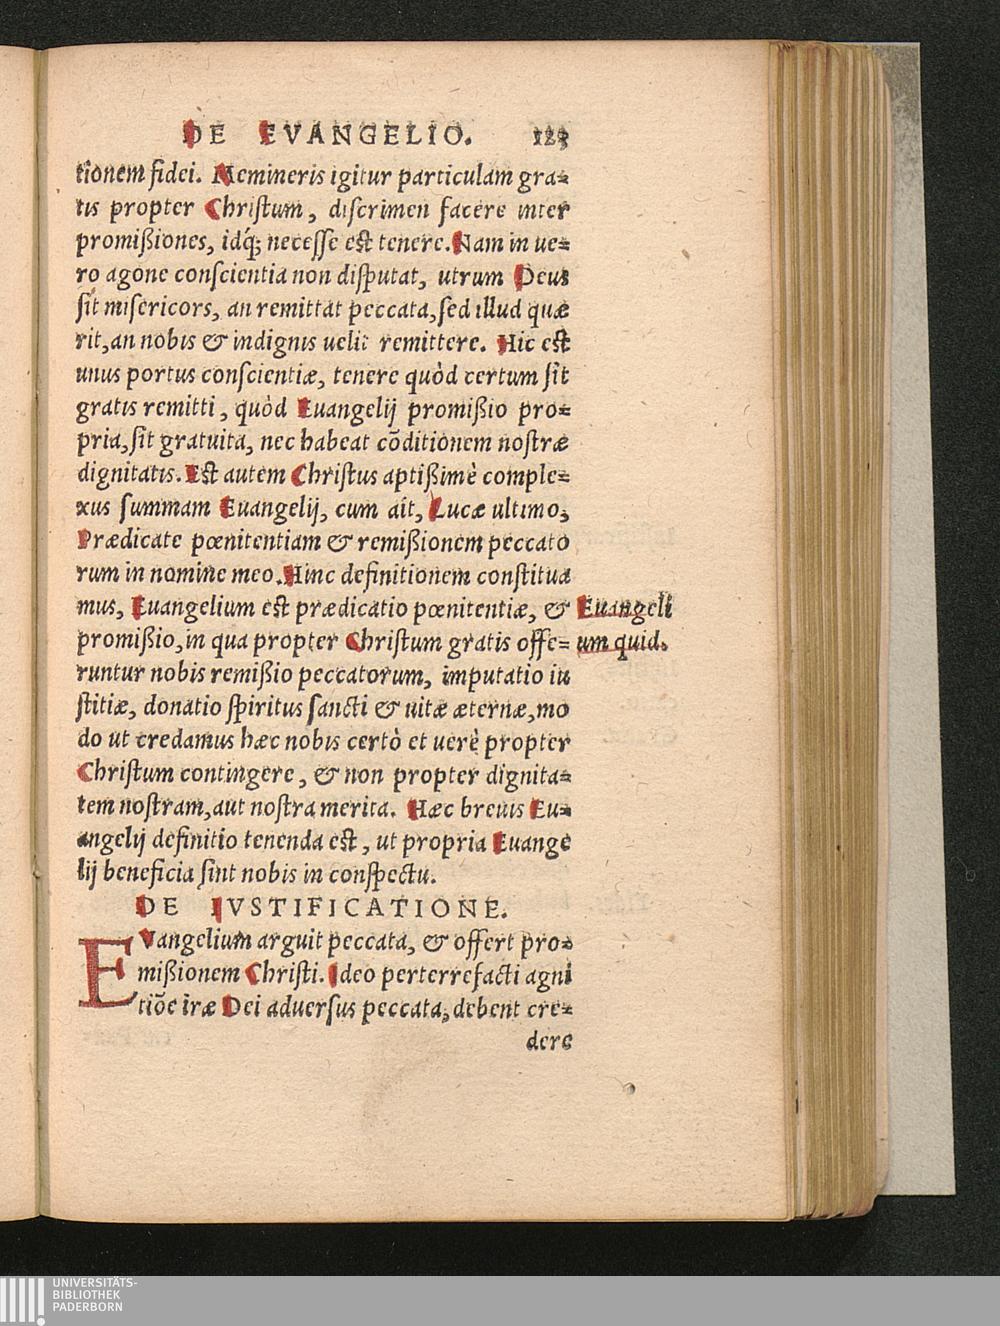 DE EVANGELIO. 123
tionem fidei. Memineris igitur particulam gra=
tis propter Christum, discrimen facere inter
promißiones, idq́; necesse est tenere. Nam in ue=
ro agone conscientia non disputat, utrum Deus
sit misericors, an remittat peccata, sed illud quæ
rit, an nobis & indignis uelit remittere. Hic est
unus portus conscientiæ, tenere quòd certum sit
gratis remitti, quòd Euangelij promißio pro=
pria, sit gratuita, nec habeat cōditionem nostræ
dignitatis. Est autem Christus aptißimè comple=
xus summam Euangelij, cum ait, Lucæ ultimo,
Prædicate pœnitentiam & remißionem peccato
rum in nomine meo. Hinc definitionem constitua
mus, Euangelium est prædicatio pœnitentiæ, & Euangeli
promißio, in qua propter Christum gratis offe= um quid.
runtur nobis remißio peccatorum, imputatio iu
stitiæ, donatio spiritus sancti & uitæ æternæ, mo
do ut credamus hæc nobis certò et uerè propter
Christum contingere, & non propter dignita=
tem nostram, aut nostra merita. Hæc breuis Eu=
angelij definitio tenenda est, ut propria Euange
lij beneficia sint nobis in conspectu.
DE IVSTIFICATIONE.
EVangelium arguit peccata, & offert pro=
mißionem Christi. Ideo perterrefacti agni
tiōe iræ Dei aduersus peccata, debent cre=
dere
UNIVERSITÄTS-
BIBLIOTHEK
PADERBORN